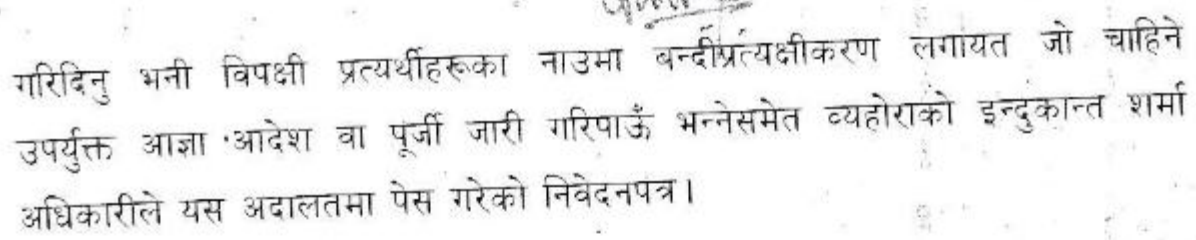 गरिदिनु भनी विपक्षी प्रत्यर्थीहरूका नाउमा बन्दीप्रत्यक्षीकरण लगायत जो चाहिने
उपर्युक्त आज्ञा आदेश वा पूर्जी जारी गरिपाऊँ भन्नेसमेत व्यहोराको इन्दुकान्त शर्मा
अधिकारीले यस अदालतमा पेस गरेको निवेदनपत्र।